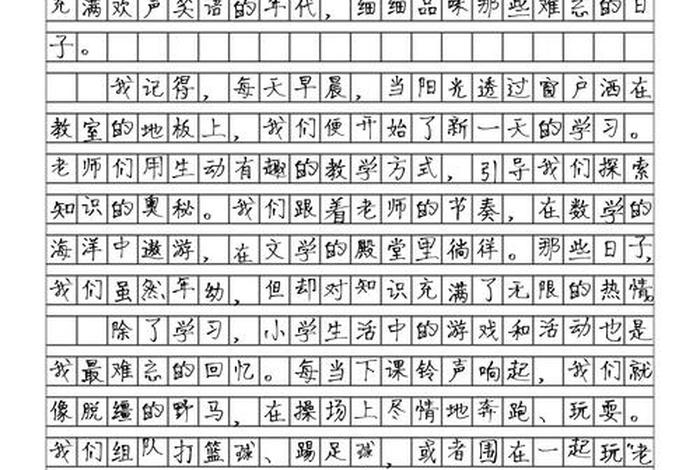 充满欢声笑语的年代，细细品味那些难忘的日
子。
我记得，每天早晨，当阳光透过窗户洒在
教室的地板上，我们便开始了新一天的学习。
老师们用生动有趣的教学方式，引导我们探索
知识的奥秘。我们跟着老师的节奏，在数学的
海洋中遨游，在文学的殿堂里徜徉。那些日子，
我们虽然年幼，但却对知识充满了无限的热情。
除了学习，小学生活中的游戏和活动也是
我最难忘的回忆。每当下课铃声响起，我们就
像脱缰的野马，在操场上尽情地奔跑、玩耍。
我们组队打篮球、踢足球，或者围在一起玩“老